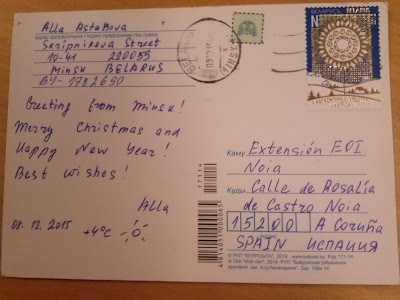 Alla Astakova
Skripnikova Street
10-41 220055
Minsk BELARUS
BY-1782690
Greeting from Minsk!
Merry Christmas and
Happy New Year!
Best wishes!
Alla
08.12.2015
+4°C
Каму Extensión EOI
Noia
Куды Calle de Rosalía
de Castro Noia
15200 A Coruña
SPAIN ИСПАНИЯ
17114
© РУП "БЕЛПОШТА", 2014